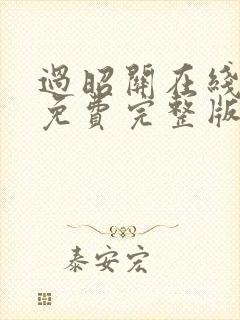 過昭關在綫
免費完整版
泰安宏